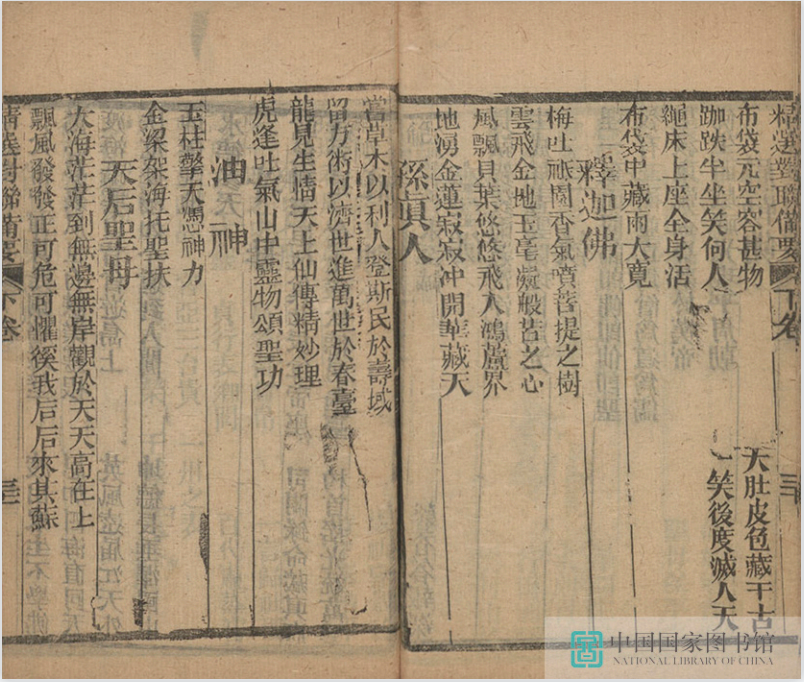 精選對聯備要 下卷 三十
布袋元空容甚物 大肚皮包藏千古
跏趺半坐笑何人 一笑後度滅人天
繩床上座全身活
布袋中藏雨大寬
釋迦佛
梅吐祇園香氣噴菩提之樹
雲飛金地玉毫凝般若之心
風飄貝葉悠悠飛入鴻蘆界
地湧金蓮寂寂冲開華藏天
孫真人
嘗草木以利人登斯民於壽域
留方術以濟世進萬世於春臺
龍見生情天上仙傳精妙理
虎逢吐氣山中靈物頌聖功
油神
玉柱擎天憑神力
金梁架海托聖扶
天后聖母
大海茫茫到無邊無岸觀於天天高在上
飄風發發正可危可懼徯我后后來其蘇
精選對聯備要 下卷 三十一
中国国家图书馆
NATIONAL LIBRARY OF CHINA